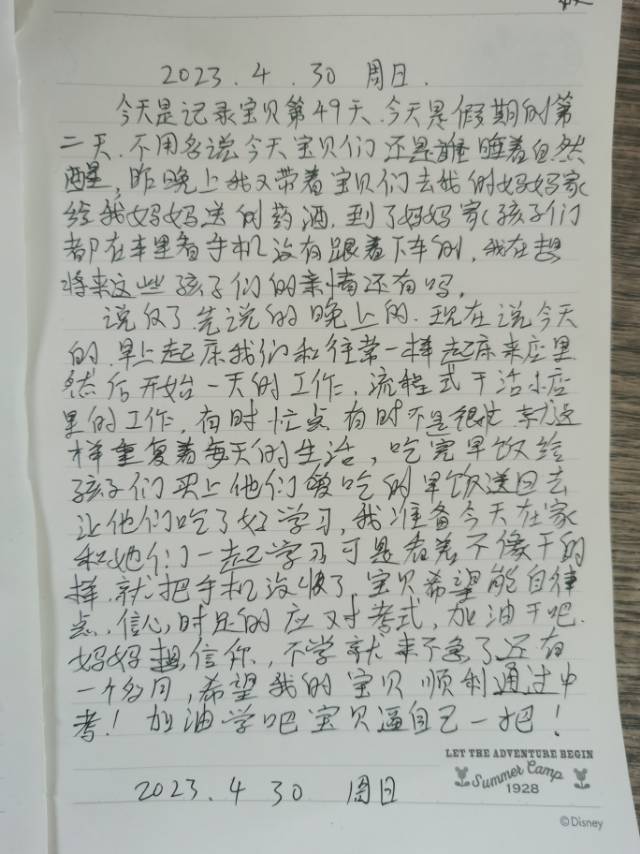 2023.4.30 周日.
今天是记录宝贝第49天.今天是假期的第
二天.不用多说今天宝贝们还是睡着自然
醒,昨晚上我又带着宝贝们去我的妈妈家
给我妈妈送的药酒.到了妈妈家孩子们
都在车里看手机没有跟着下车的,我在想
将来这些孩子们的亲情还有吗。
说反了先说的晚上的.现在说今天
的.早上起床我们和往常一样起床来店里
然后开始一天的工作,流程式干活小店
里的工作,有时忙点有时不是很忙就这
样重复着每天的生活,吃完早饭给
孩子们买上他们爱吃的早饭送回去
让他们吃了好学习,我准备今天在家
和她们一起学习可是看着不像干的
样.就把手机没收了.宝贝希望能自律
点,信心时足的应对考式,加油干吧.
妈妈相信你,不学就来不急了还有
一个多月,希望我的宝贝顺利通过中
考!加油学吧宝贝逼自己一把!
LET THE ADVENTURE BEGIN
Summer Camp
1928
2023.4 30 周日
©Disney